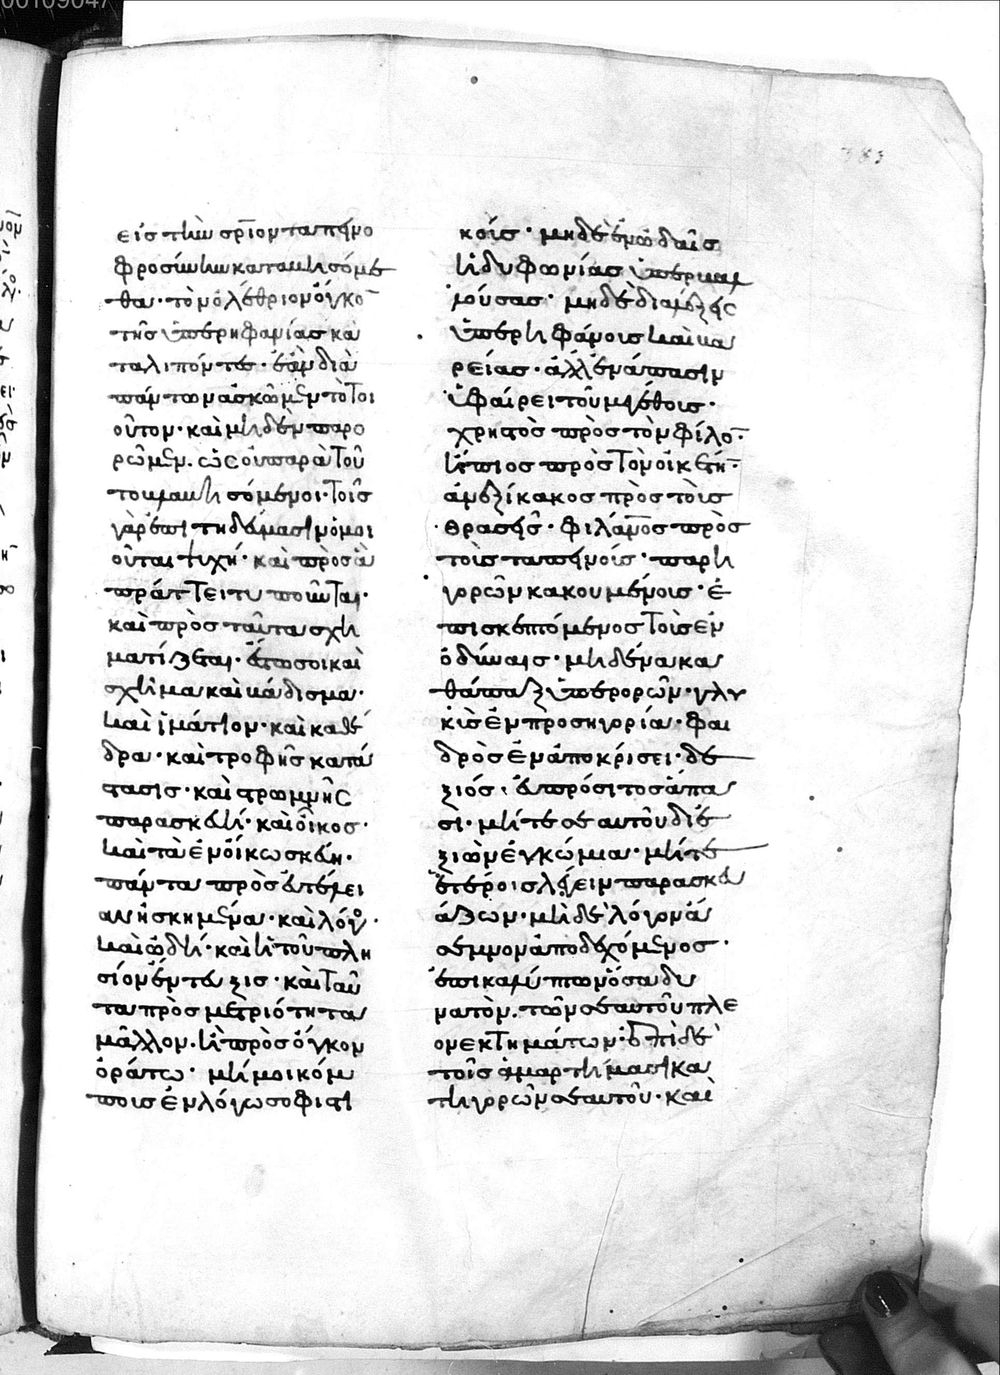 εἰς τὴν σρίον ταπεινο
φροσύνην καταβησόμε
θα· τὸν ὀλέθριον ὄγκο̅
τῆς ὑπερηφανίας κα
ταλιπόντες· ἐὰν διὰ
πάντων ἀσκῶμεν τὸ τοι
οῦτον· καὶ μηδὲν παρο
ρῶμεν. ὡς οὐ παρὰ τοῦ
το βλαβησόμενοι· τοῖς
γὰρ ἐπιτηδεύμασιν ὁμοι
οῦται ψυχή· καὶ πρὸς ἃ
πράττει τυποῦται·
καὶ πρὸς ταῦτα σχη
ματίζεται· ἔστω σοι καὶ
σχῆμα καὶ βάδισμα·
καὶ ἱμάτιον· καὶ καθέ
δρα· καὶ τροφῆς κατά
στασις· καὶ στρωμνῆς
παρασκευή· καὶ οἶκος·
καὶ τὰ ἐν οἴκω σκεύη·
πάντα πρὸς εὐτέλει
αν ἠσκημένα· καὶ λόγος·
καὶ ὠδή· καὶ ἡ τοῦ πλη
σίον ἔντευξις· καὶ ταῦ
τα πρὸς μετριότητα
μᾶλλον. ἢ πρὸς ὄγκον
ὁράτω· μή μοι κόμ
ποις ἐν λόγω σοφιστι
κοῖς· μηδὲ ἐν ὠδαῖς
ἡδυφωνίας ὑπερβαλ
λούσας· μηδὲ διαλέξεις
ὑπερηφάνοις καὶ βα
ρείας· ἀλλ' ἐν ἅπασιν
ὑφαίρει τοῦ μεγέθους·
χρηστὸς πρὸς τὸν φίλο̅·
ἤπιος πρὸς τὸν οἰκέτη̅·
ἀνεξίκακος πρὸς τοὺς
θρασεῖς· φιλάνο̅ς πρὸς
τοὺς ταπεινούς· παρη
γορῶν κακουμένους· ἐ
πισκεπτόμενος τοὺς ἐν
ὀδύναις· μηδένα κα
θάπαξ ὑπερορῶν· γλυ
κὺς ἐν προσηγορία· φαι
δρὸς ἐν ἀποκρίσει· δε
ξιός· εὐπρόσιτος ἅπα
σι· μήτε σεαυτοῦ διε
ξιὼν ἐγκώμια· μήτε
ἑτέρους λέγειν παρασκευ
άζων· μηδὲ λόγον ἀ
σεμνον ἀποδεχόμενος·
ἐπικαλύπτων ὅσα δυ
νατὸν. τῶν σεαυτοῦ πλε
ονεκτημάτων· ἐπὶ δὲ
τοῖς ἁμαρτήμασι κα
τηγορῶν σεαυτοῦ· καὶ